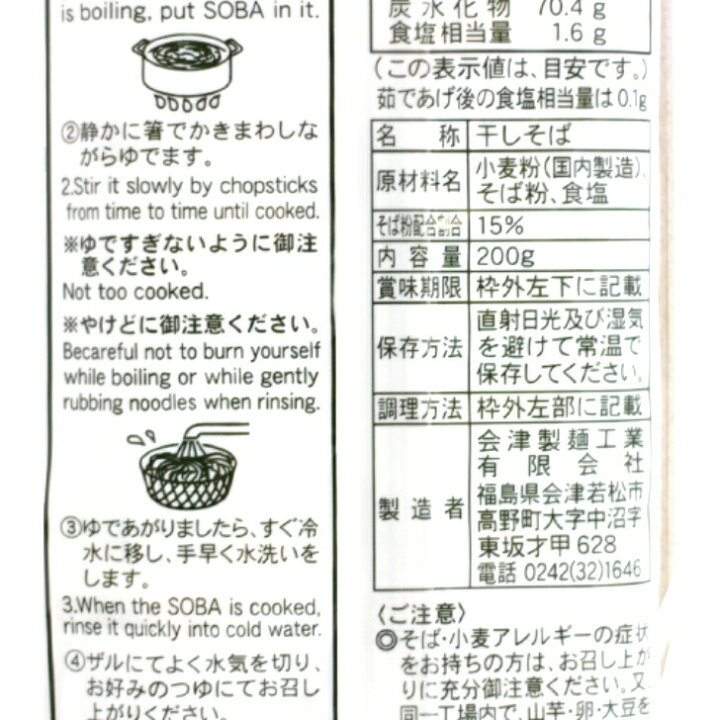 is boiling, put SOBA in it.
②静かに箸でかきまわしな
がらゆでます。
2.Stir it slowly by chopsticks
from time to time until cooked.
※ゆですぎないように御注
意ください。
Not too cooked.
※やけどに御注意ください。
Becareful not to burn yourself
while boiling or while gently
rubbing noodles when rinsing.
③ゆであがりましたら、すぐ冷
水に移し、手早く水洗いを
します。
3.When the SOBA is cooked,
rinse it quickly into cold water.
④ザルにてよく水気を切り、
お好みのつゆにてお召し
上がりください。
炭水化物 70.4g
食塩相当量 1.6g
(この表示値は、目安です。)
茹であげ後の食塩相当量は0.1g
名称 干しそば
原材料名 小麦粉(国内製造)、
そば粉、食塩
そば粉配合割合 15%
内容量 200g
賞味期限 枠外左下に記載
保存方法 直射日光及び湿気
を避けて常温で
保存してください。
調理方法 枠外左部に記載
製造者 会津製麺工業
有限会社
福島県会津若松市
高野町大字中沼字
東坂才甲628
電話 0242(32)1646
〈ご注意〉
◎そば・小麦アレルギーの症状
をお持ちの方は、お召し上が
りに充分御注意ください。又、
同一工場内で、山芋・卵・大豆を